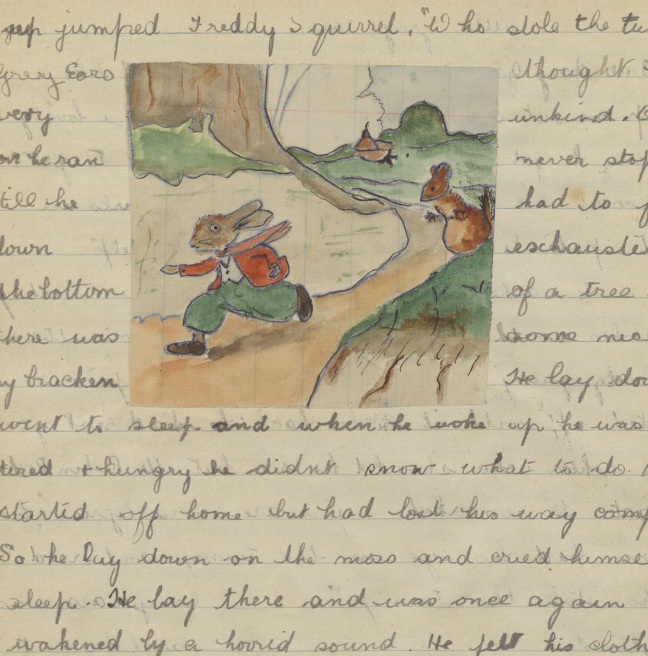 up jumped Freddy Squirrel, "Who stole the
Grey Ears thought
very unkind.
he ran never
till he had to
down
the bottom of a tree
here was some
y bracken He lay
went to sleep and when he woke up he was
tired + hungry he didnt know what to do.
started off home but had lost his way
So he Day down on the moss and cried
sleep. He lay there and was once again
wakened by a horrid sound. He felt his